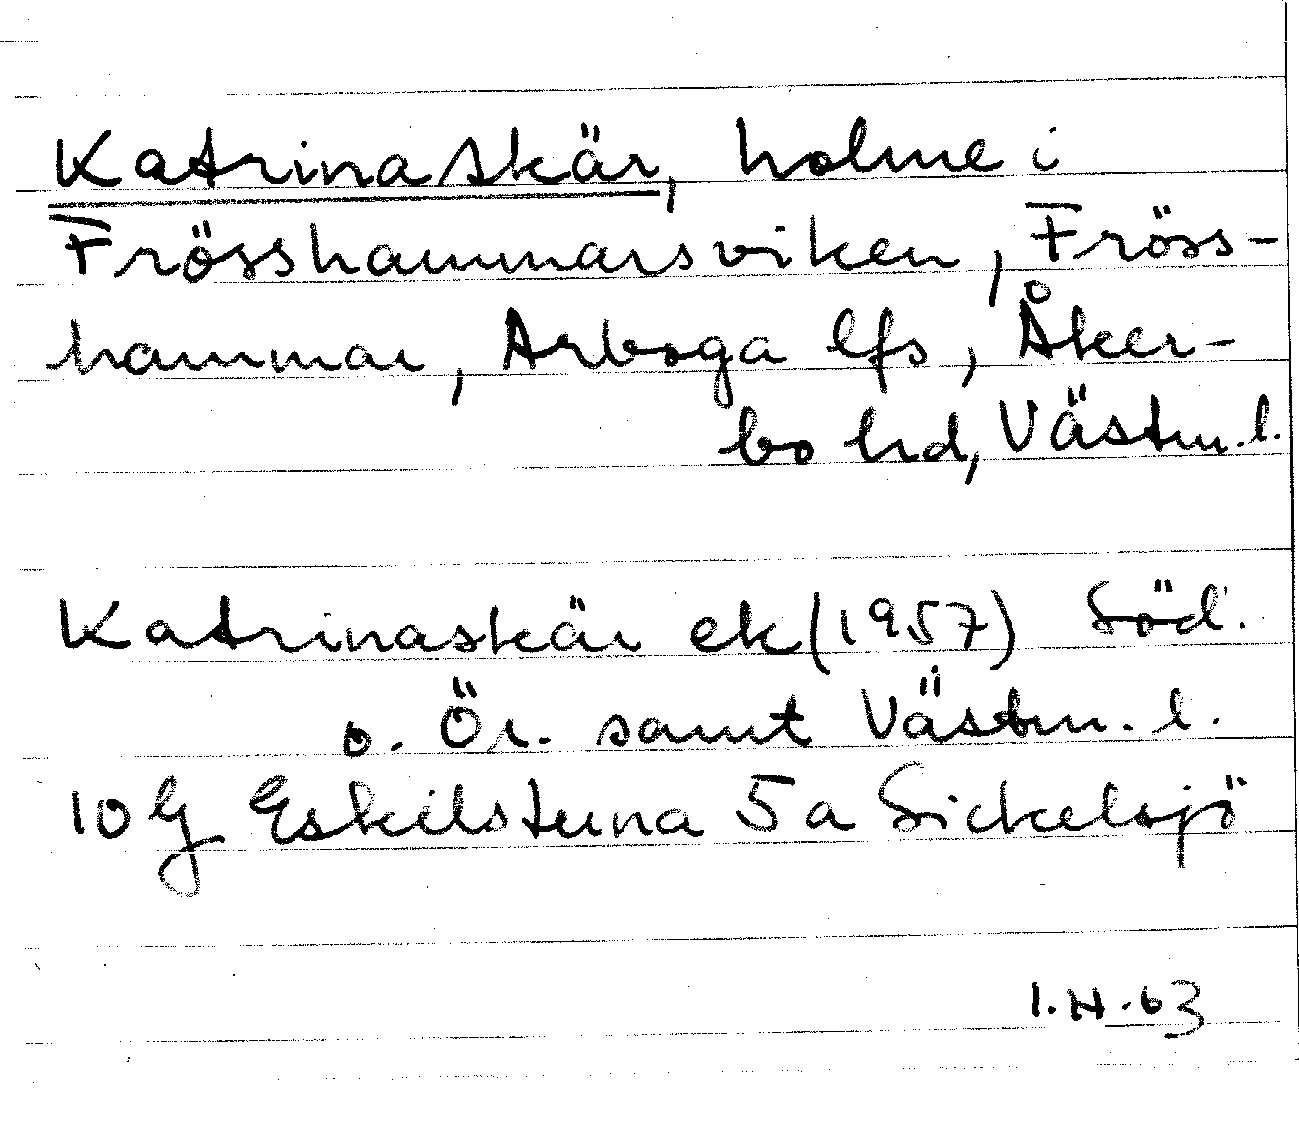 Katrinaskär, holme i
Frösshammarsviken, Fröss-
hammar, Arboga lfs, Åker-
bo hd, Västm. l.
Katrinaskär ek (1957) Söd.
o. Ör. samt Västm. l.
10 G Eskilstuna 5 a Sickelsjö
I.H.63